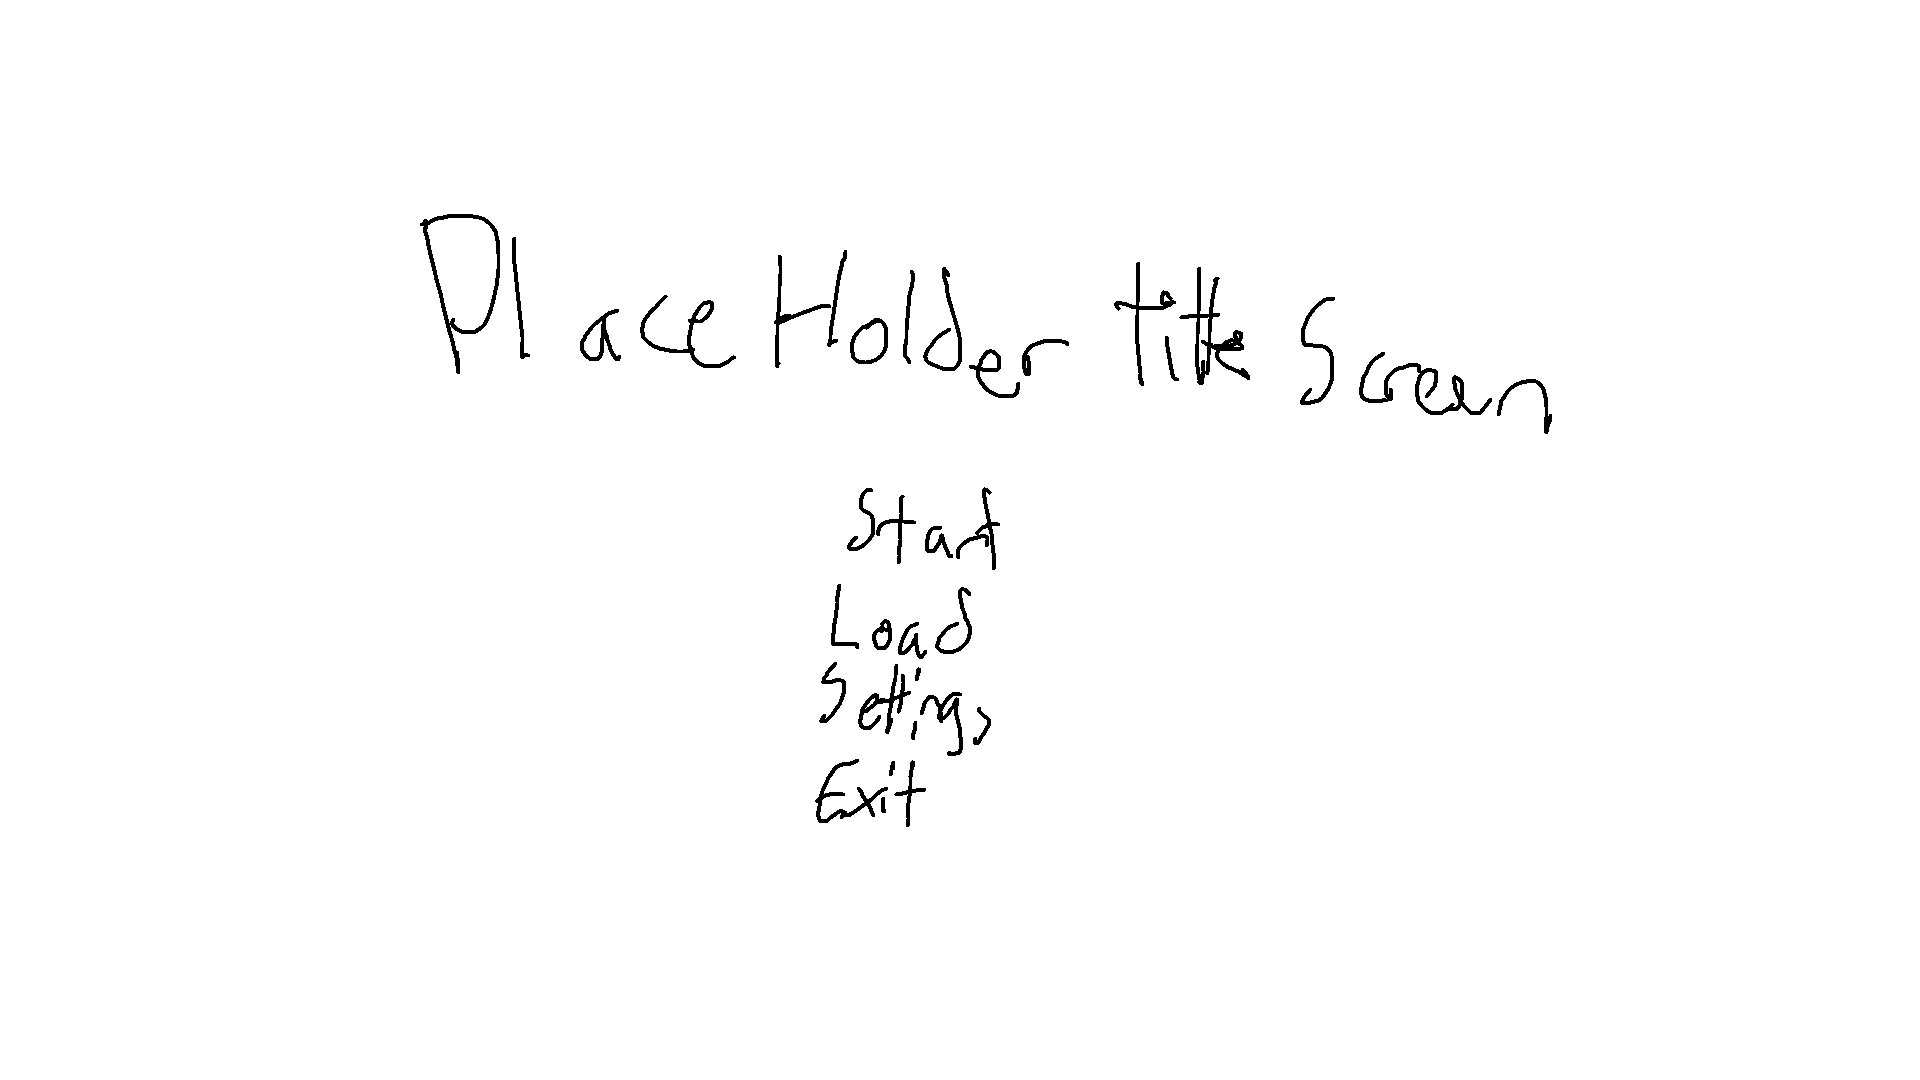 Place Holder title Screen
Start
Load
Settings
Exit